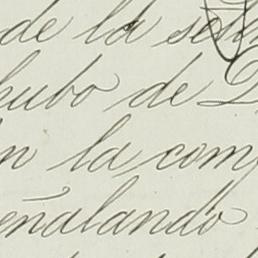 de la
hubo de
la com
eñalando